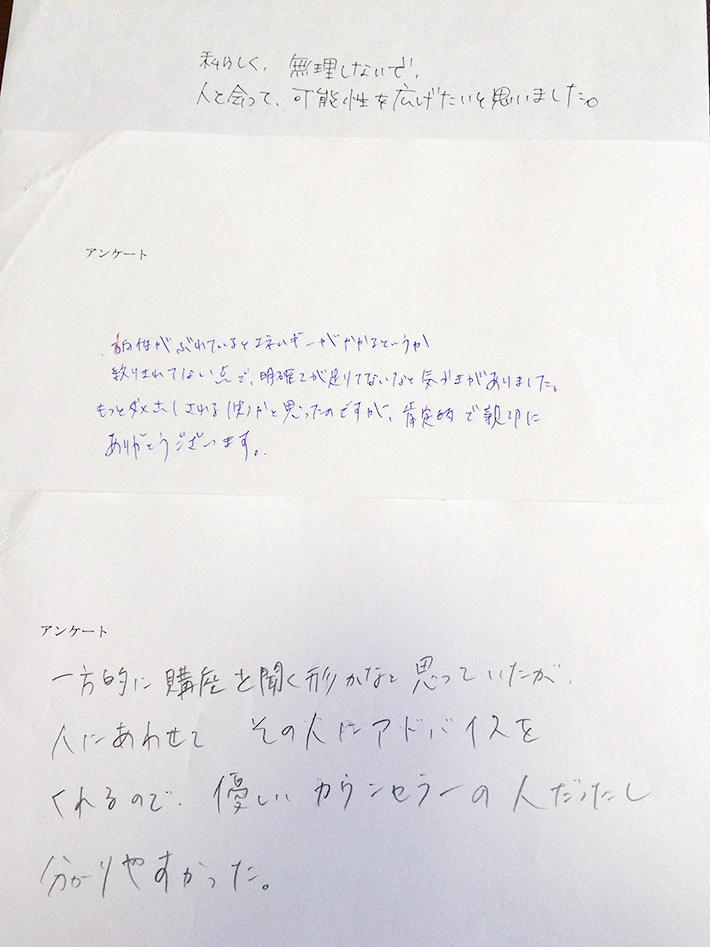 私らしく、無理しないで、
人と会って、可能性を広げたいと思いました。
アンケート
方向性がぶれているとエネルギーがかかるというか
絞りきれてない点で、明確さが足りてないなと気づきがありました。
もっとダメ出しされる(笑)かと思ったのですが、肯定的で親切に
ありがとうございます。
アンケート
一方的に購座を聞く形かなと思っていたが、
人にあわせて その人にアドバイスを
くれるので、優しいカウンセラーの人だったし
分かりやすかった。